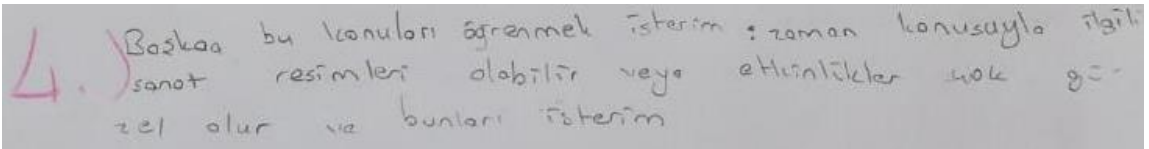 4.) Başkaa bu konuları öğrenmek isterim : zaman konusuyla ilgili
sanat resimleri olabilir veya etkinlikler çok gü-
zel olur ve bunları isterim